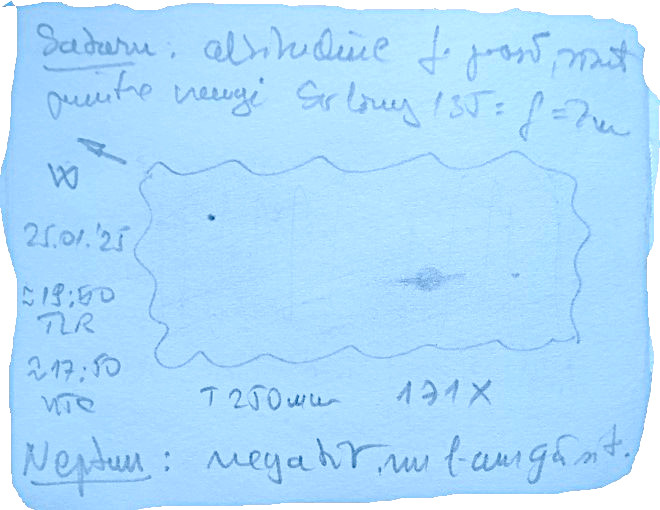 Saturn: altitudine f. joasă, văzut
printre crengi
W
25.01.'25
≈19:50
TLR
≈17:50
UTC
T 250mm 171X
Neptun: negativ, nu l-am găsit.